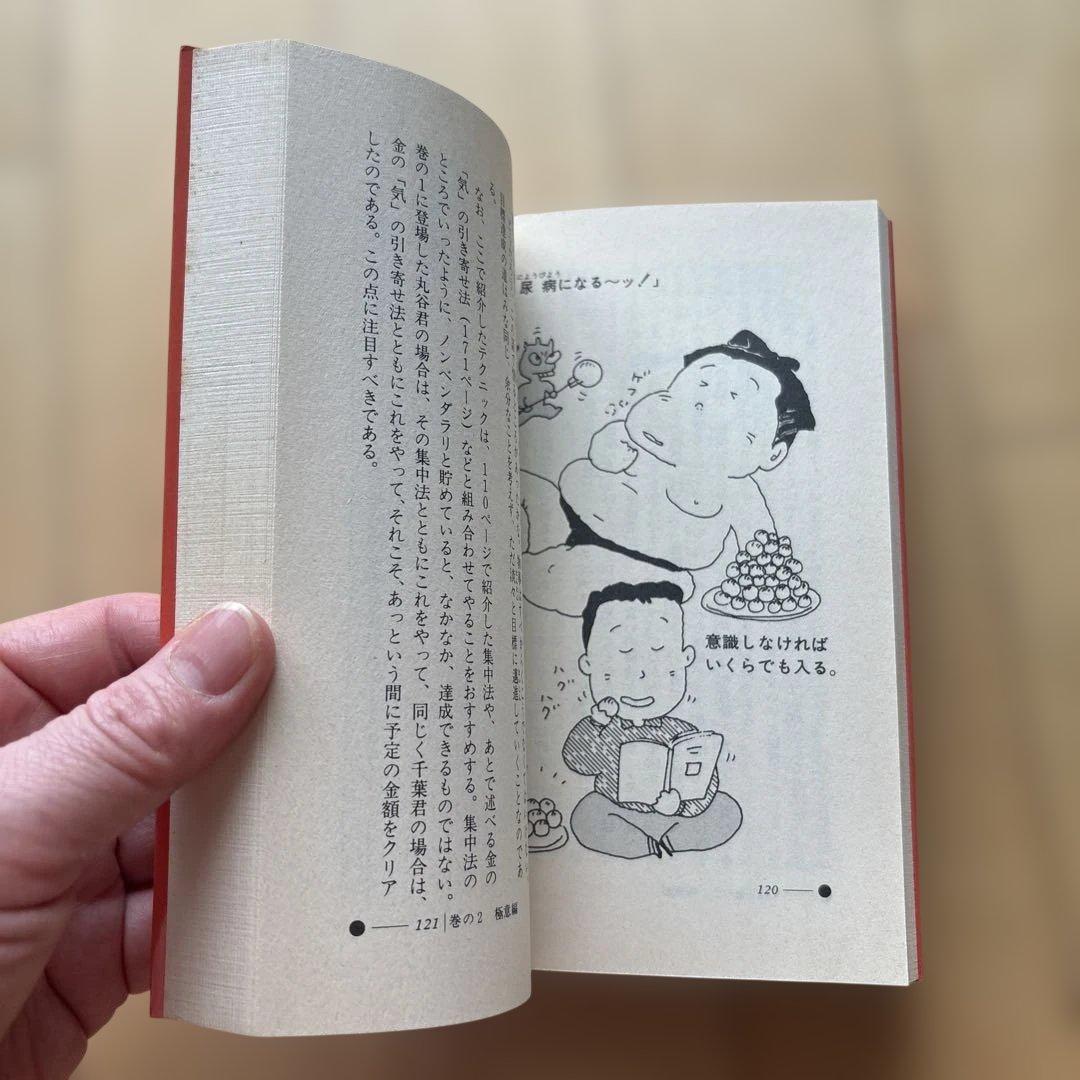 にょうびょう
尿病になる〜ッ！」
ゲップ
意識しなければ
いくらでも入る。
ハグ
ハグ
120
目標達成の道はみな同じ、余分なことを考えず、ただ淡々と目標に邁進していくことなのであ
る。
なお、ここで紹介したテクニックは、110ページで紹介した集中法や、あとで述べる金の
「気」の引き寄せ法（171ページ）などと組み合わせてやることをおすすめする。集中法の
ところでいったように、ノンベンダラリと貯めていると、なかなか、達成できるものではない。
巻の1に登場した丸谷君の場合は、その集中法とともにこれをやって、同じく千葉君の場合は、
金の「気」の引き寄せ法とともにこれをやって、それこそ、あっという間に予定の金額をクリア
したのである。この点に注目すべきである。
121 巻の2 極意編